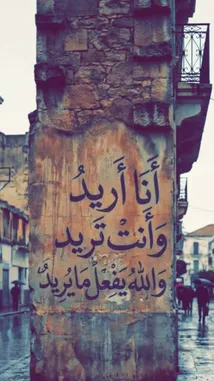 أَنَا أُرِيدُ
وَأَنتْ تَرِيد
وَاللهُ يَفْعَلْ مَا يُرِيدُ